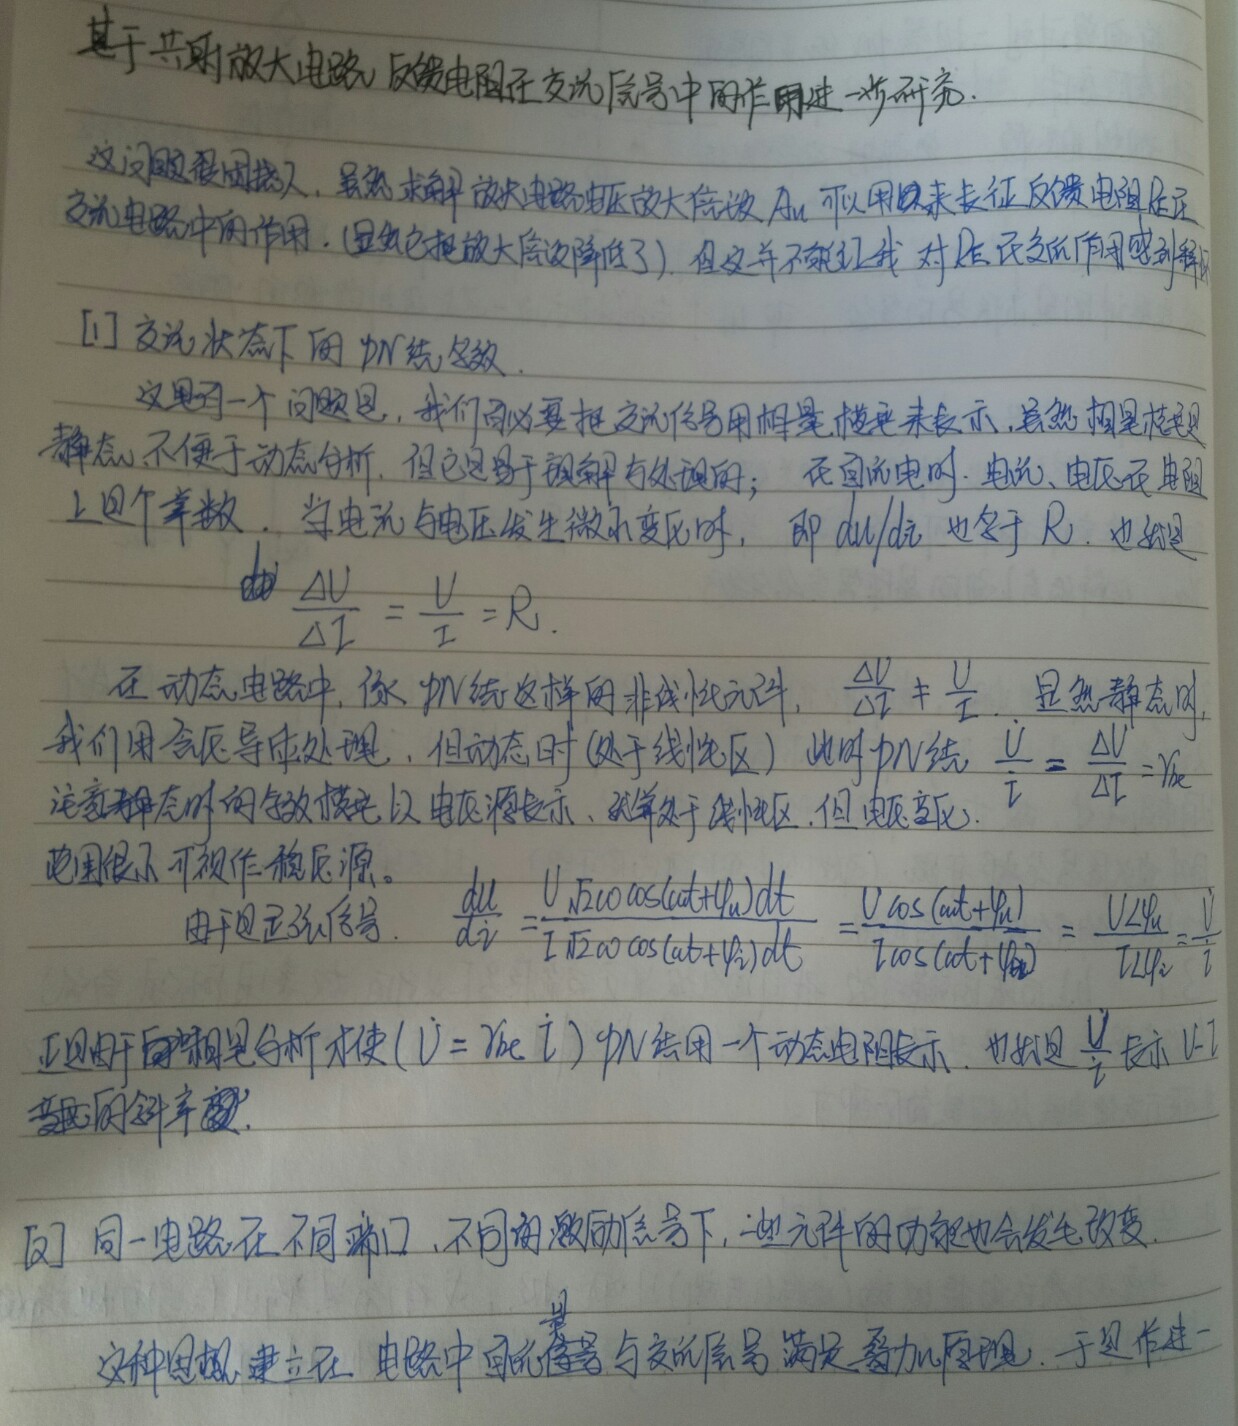 基于共射放大电路反馈电阻在交流信号中的作用进一步研究.
这问题很困扰人.虽然求解放大电路电压放大倍数 Au 可以用来表征反馈电阻RE在
交流电路中的作用.(显然它把放大倍数降低了)但这并不能让我对RE在交流作用感到释
[1] 交流状态下的PN结等效.
这里面一个问题是,我们有必要把交流信号用相量模型来表示,虽然相量模型是
静态,不便于动态分析,但它是易于理解与处理的;在直流电时.电流、电压在电阻
上是个常数.当电流与电压发生微小变化时,即 du/di 也等于R.也就是
ΔU/ΔI = U/I = R.
在动态电路中,像PN结这样的非线性元件, ΔU/ΔI ≠ U/I . 显然静态时,
我们用合压导成处理,但动态时(处于线性区)此时PN结 U̇/İ = ΔU/ΔI = rbe
注意静态时的等效模型以电压源表示、就算处于线性区.但电压变化.
范围很小可视作稳压源。
由于是正弦信号. du/di = U√2ω cos(ωt+φu)dt / I√2ω cos(ωt+φi)dt = U cos(ωt+φu) / I cos(ωt+φi) = U∠φu / I∠φi = U̇/İ
正是由于相量分析才使(U̇ = rbe İ)PN结用一个动态电阻表示.也就是 U̇/İ 表示 U-I
的斜率.
[2] 同一电路在不同端口、不同的激励信号下,一些元件的功能也会发生改变.
这种思想是建立在电路中直流信号与交流信号满足叠加原理.于是作进一